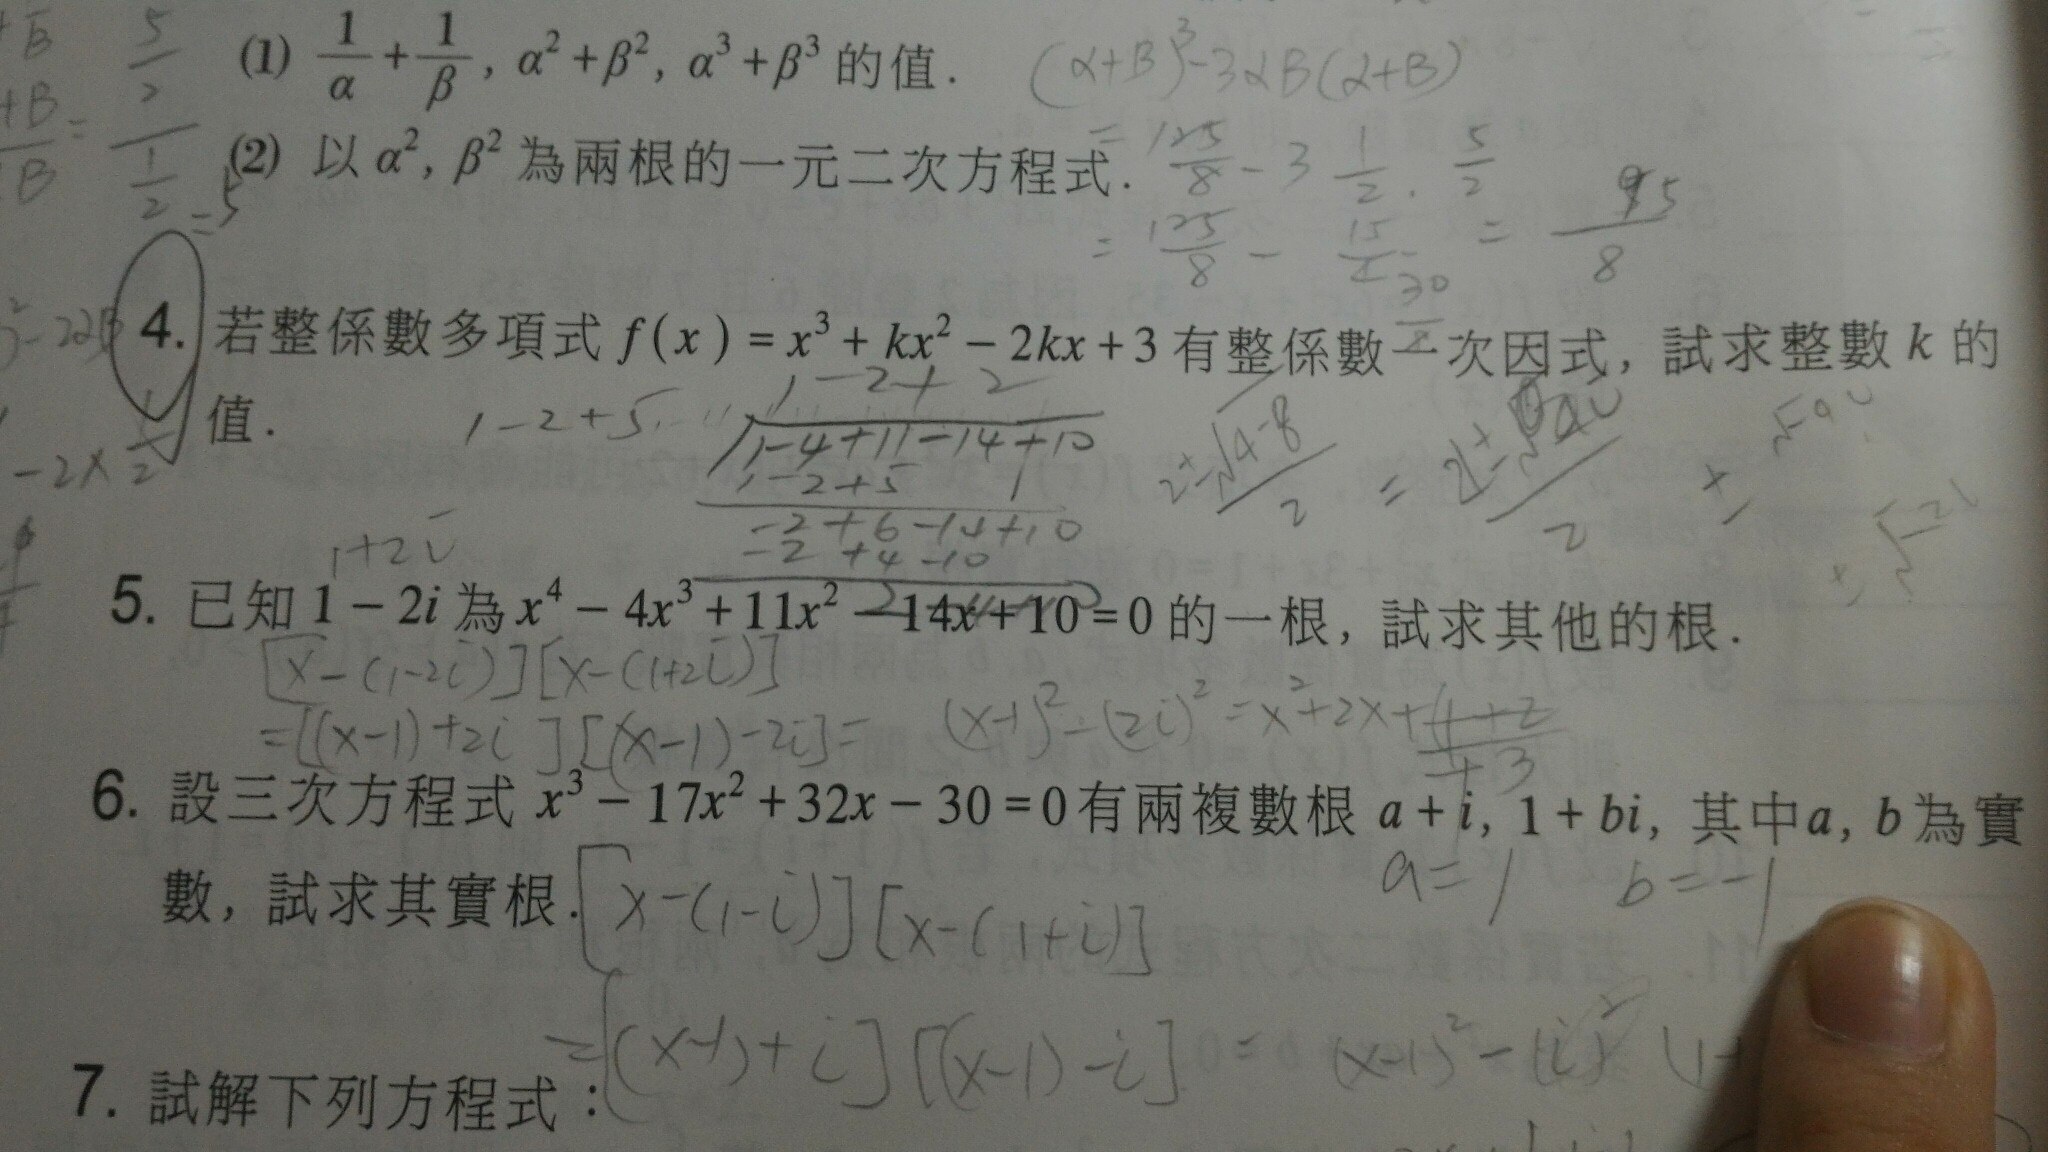 (1) 1/α + 1/β, α² + β², α³ + β³ 的值.
(α+B)³-3αB(α+B)
= 125/8 - 3 1/2 . 5/2
(2) 以 α², β² 為兩根的一元二次方程式.
= 125/8 - 15/2 = 95/8
30/8
5/2
1/2
=5
4. 若整係數多項式 f(x) = x³ + kx² − 2kx + 3 有整係數一次因式, 試求整數 k 的
值.
1-2+2
1-2+5
1-4+11-14+10
1-2+5
-2+6-14+10
-2+4-10
-2×1/2
2±√4-8/2
1+2i
5. 已知 1 − 2i 為 x⁴ − 4x³ + 11x² − 14x + 10 = 0 的一根, 試求其他的根.
[x-(1-2i)][x-(1+2i)]
=[(x-1)+2i][(x-1)-2i]= (x-1)²-(2i)²=x²+2x+
+3
6. 設三次方程式 x³ − 17x² + 32x − 30 = 0 有兩複數根 a + i, 1 + bi, 其中a, b 為實
a=1 b=-1
數, 試求其實根.
[x-(1-i)][x-(1+i)]
=[(x-1)+i][(x-1)-i]= (x-1)²-(i)²
7. 試解下列方程式: